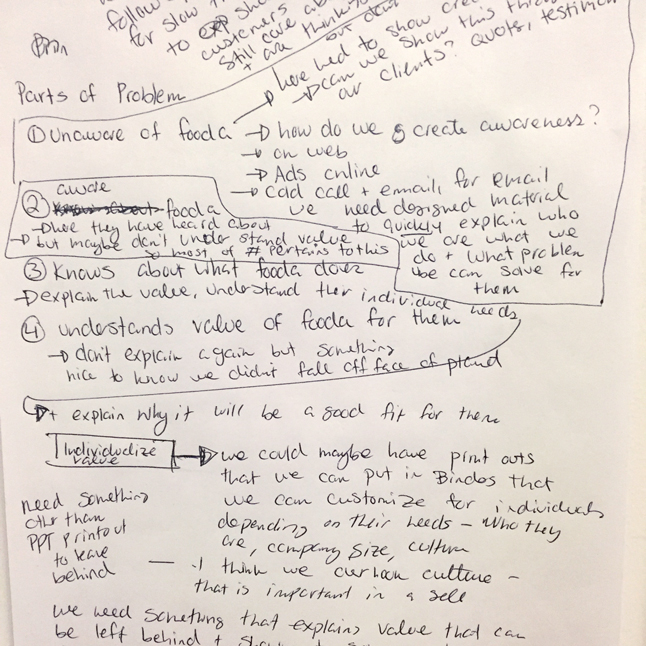 follow
for slow
to show
customers
still care ab
+ are thinking
out
have had to show
→ can we show this
our clients? Quotes, testimon
Parts of Problem
① Unaware of fooda → how do we create awareness?
→ on web
→ Ads online
→ Cold call + emails, for email
we need designed material
to quickly explain who
we are what we
do + what problem
we can solve for
them
② aware fooda
→ here they have heard about
→ but maybe don't understand value
so most of # pertains to this
③ Knows about what fooda does
→ explain the value, understand their individual needs
④ understands value of fooda for them
→ don't explain again but something
nice to know we didn't fall off face of
→ + explain why it will be a good fit for them
Individualize
value
→ we could maybe have print outs
that we can put in that
we can customize for individuals
depending on their needs - who they
are, company size, culture
need something
other than
PPT printout
to leave
behind
— I think we culture -
that is important in a sell
we need something that explains value that can
be left behind +